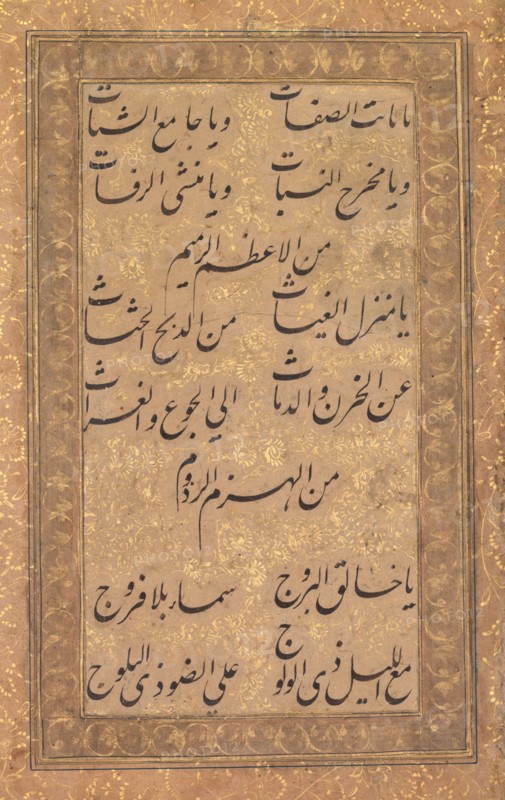 يا ثابت الصفات ويا جامع الشتات
ويا مخرج النبات ويا منشئ الرفات
من الاعظم الرميم
يا منزل الغياث من الدلح الحثاث
عن الخرن والدماث الي الجوع والغراث
من الهزم الرذوم
يا خالق البروج سماء بلا فروج
مع الليل ذي الولوج علي الضوء ذي البلوج